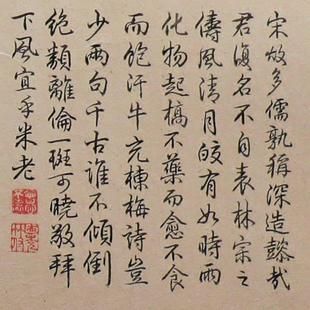 宋故多儒孰稱深造懿哉
君復名不自表林宗之
儔風清月皎有如時雨
化物起槁不藥而愈不食
而飽汗牛充棟梅詩豈
少兩句千古誰不傾倒
絕類離倫一斑可曉敬拜
下風宜乎米老